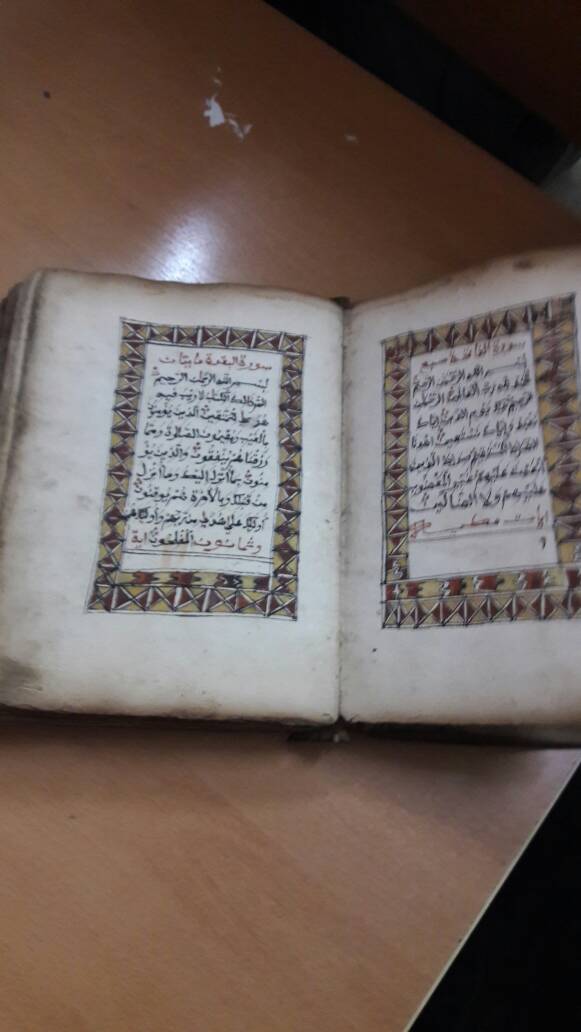 سورة الفاتحة سبع
بسم الله الرحمن الرحيم
الحمد لله رب العالمين الرحمن
الرحيم ملك يوم الدين إياك
نعبد وإياك نستعين اهدنا
الصراط المستقيم صراط الذين
أنعمت عليهم غير المغضوب
عليهم ولا الضالين
سورة البقرة مايتان
بسم الله الرحمن الرحيم
الم ذلك الكتاب لا ريب فيه
هدى للمتقين الذين يؤمنون
بالغيب ويقيمون الصلوة ومما
رزقناهم ينفقون والذين يؤ
منون بما أنزل إليك وما أنزل
من قبلك وبالآخرة هم يوقنون
أوليك على هدى من ربهم وأوليك هم
وثمانون المفلحون آية